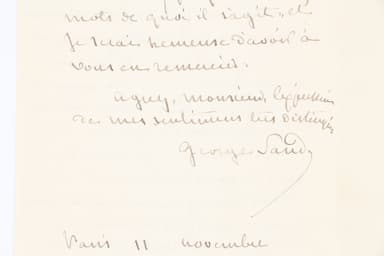 mots de quoi il s'agit, et
je serai heureuse d'avoir à
vous en remercier.
agréez, monsieur, l'expression
de mes sentiments très distingués
George Sand
Paris 11 novembre